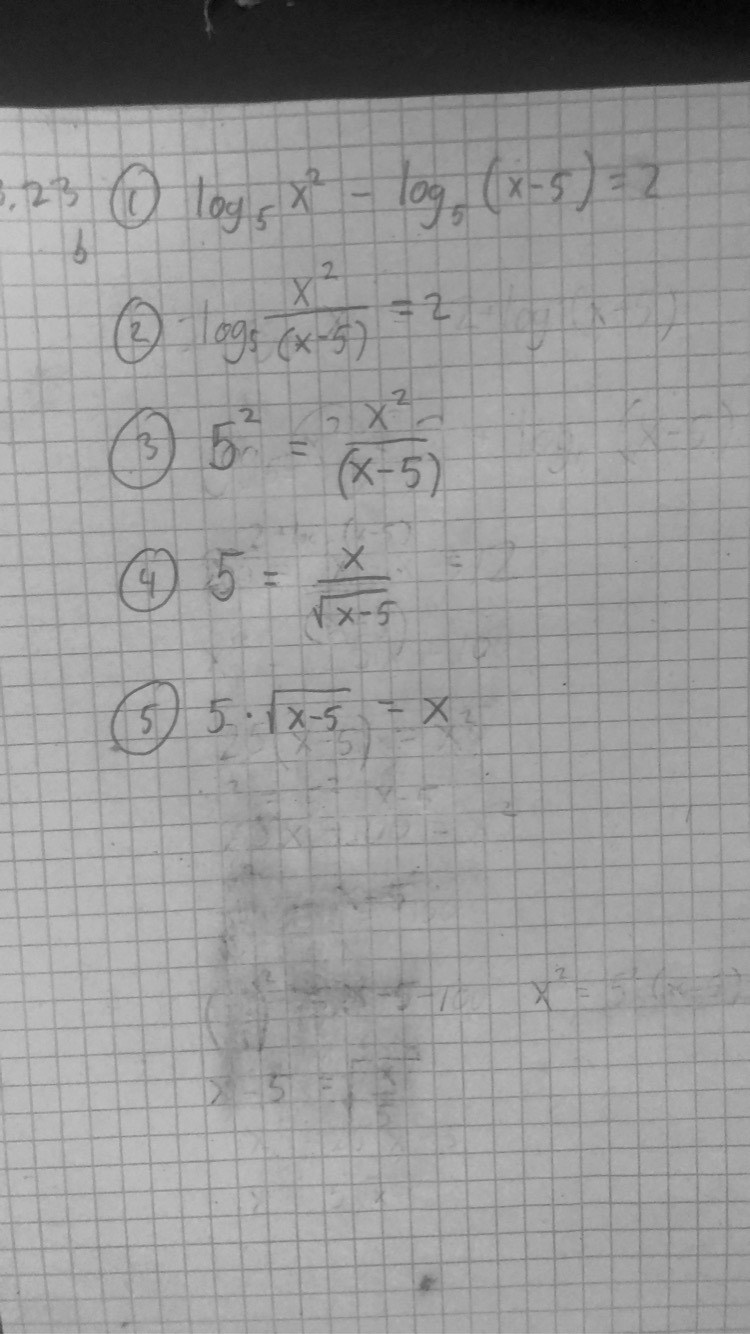 .23 b ① log₅ x² - log₅ (x-5) = 2
② log₅ x²/(x-5) = 2
③ 5² = x²/(x-5)
④ 5 = x/√(x-5)
⑤ 5 · √(x-5) = x
x² = 5 (x-5)